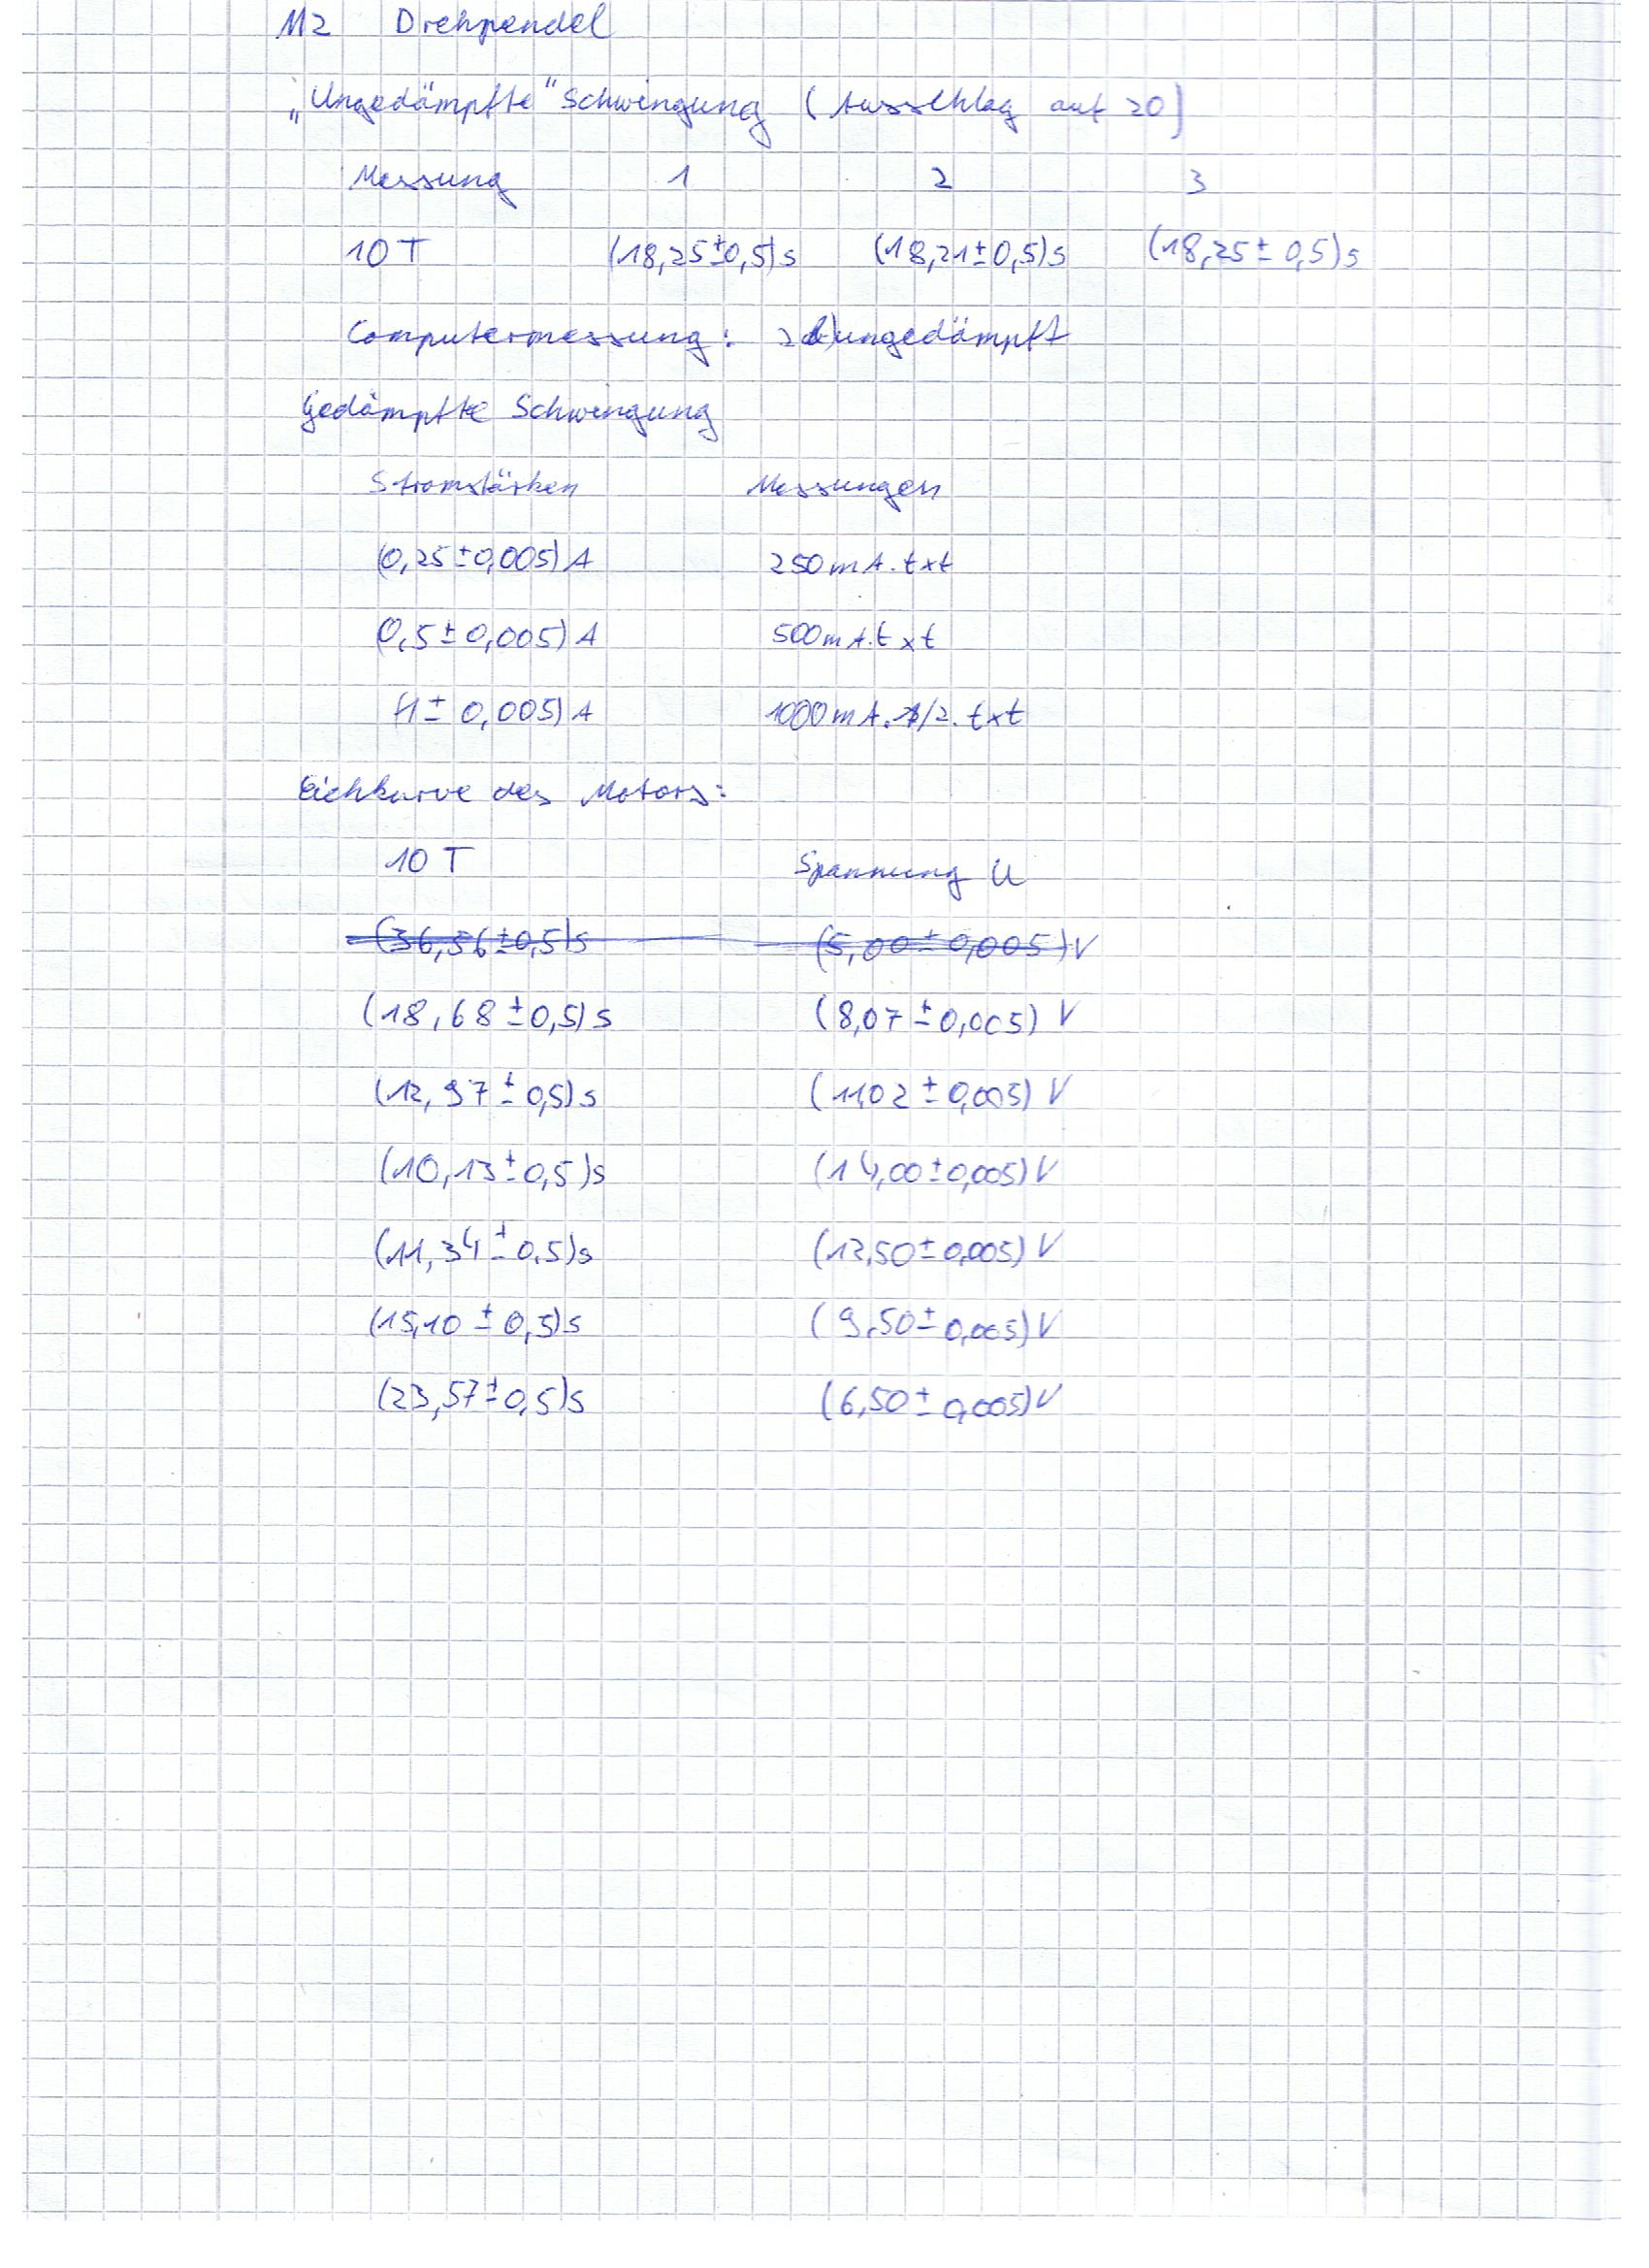 M2 Drehpendel
„Ungedämpfte" Schwingung (Ausschlag auf 20)
Messung 1 2 3
10 T (18,25±0,5)s (18,21±0,5)s (18,25±0,5)s
Computermessung: ungedämpft
Gedämpfte Schwingung
Stromstärken Messungen
(0,25±0,005)A 250mA.txt
(0,5±0,005)A 500mA.txt
(1±0,005)A 1000mA.1/2.txt
Eichkurve des Motors:
10 T Spannung U
(36,56±0,5)s (5,00±0,005)V
(18,68±0,5)s (8,07±0,005)V
(12,97±0,5)s (11,02±0,005)V
(10,13±0,5)s (14,00±0,005)V
(11,34±0,5)s (12,50±0,005)V
(15,10±0,5)s (9,50±0,005)V
(23,57±0,5)s (6,50±0,005)V